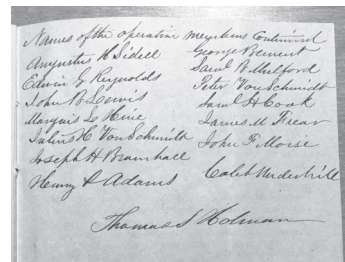 Names of the operative members Continued
Augustus H Sidell
Edwin G Reynolds
John B Loomis
Marquis Le Hine
Julius H Von Schmidt
Joseph H Bramhall
Henry R Adams
George Bement
Saml R Mulford
Peter Von Schmidt
Saml H Cook
James M Frear
John F Moise
Caleb Underhill
Thomas S Holman